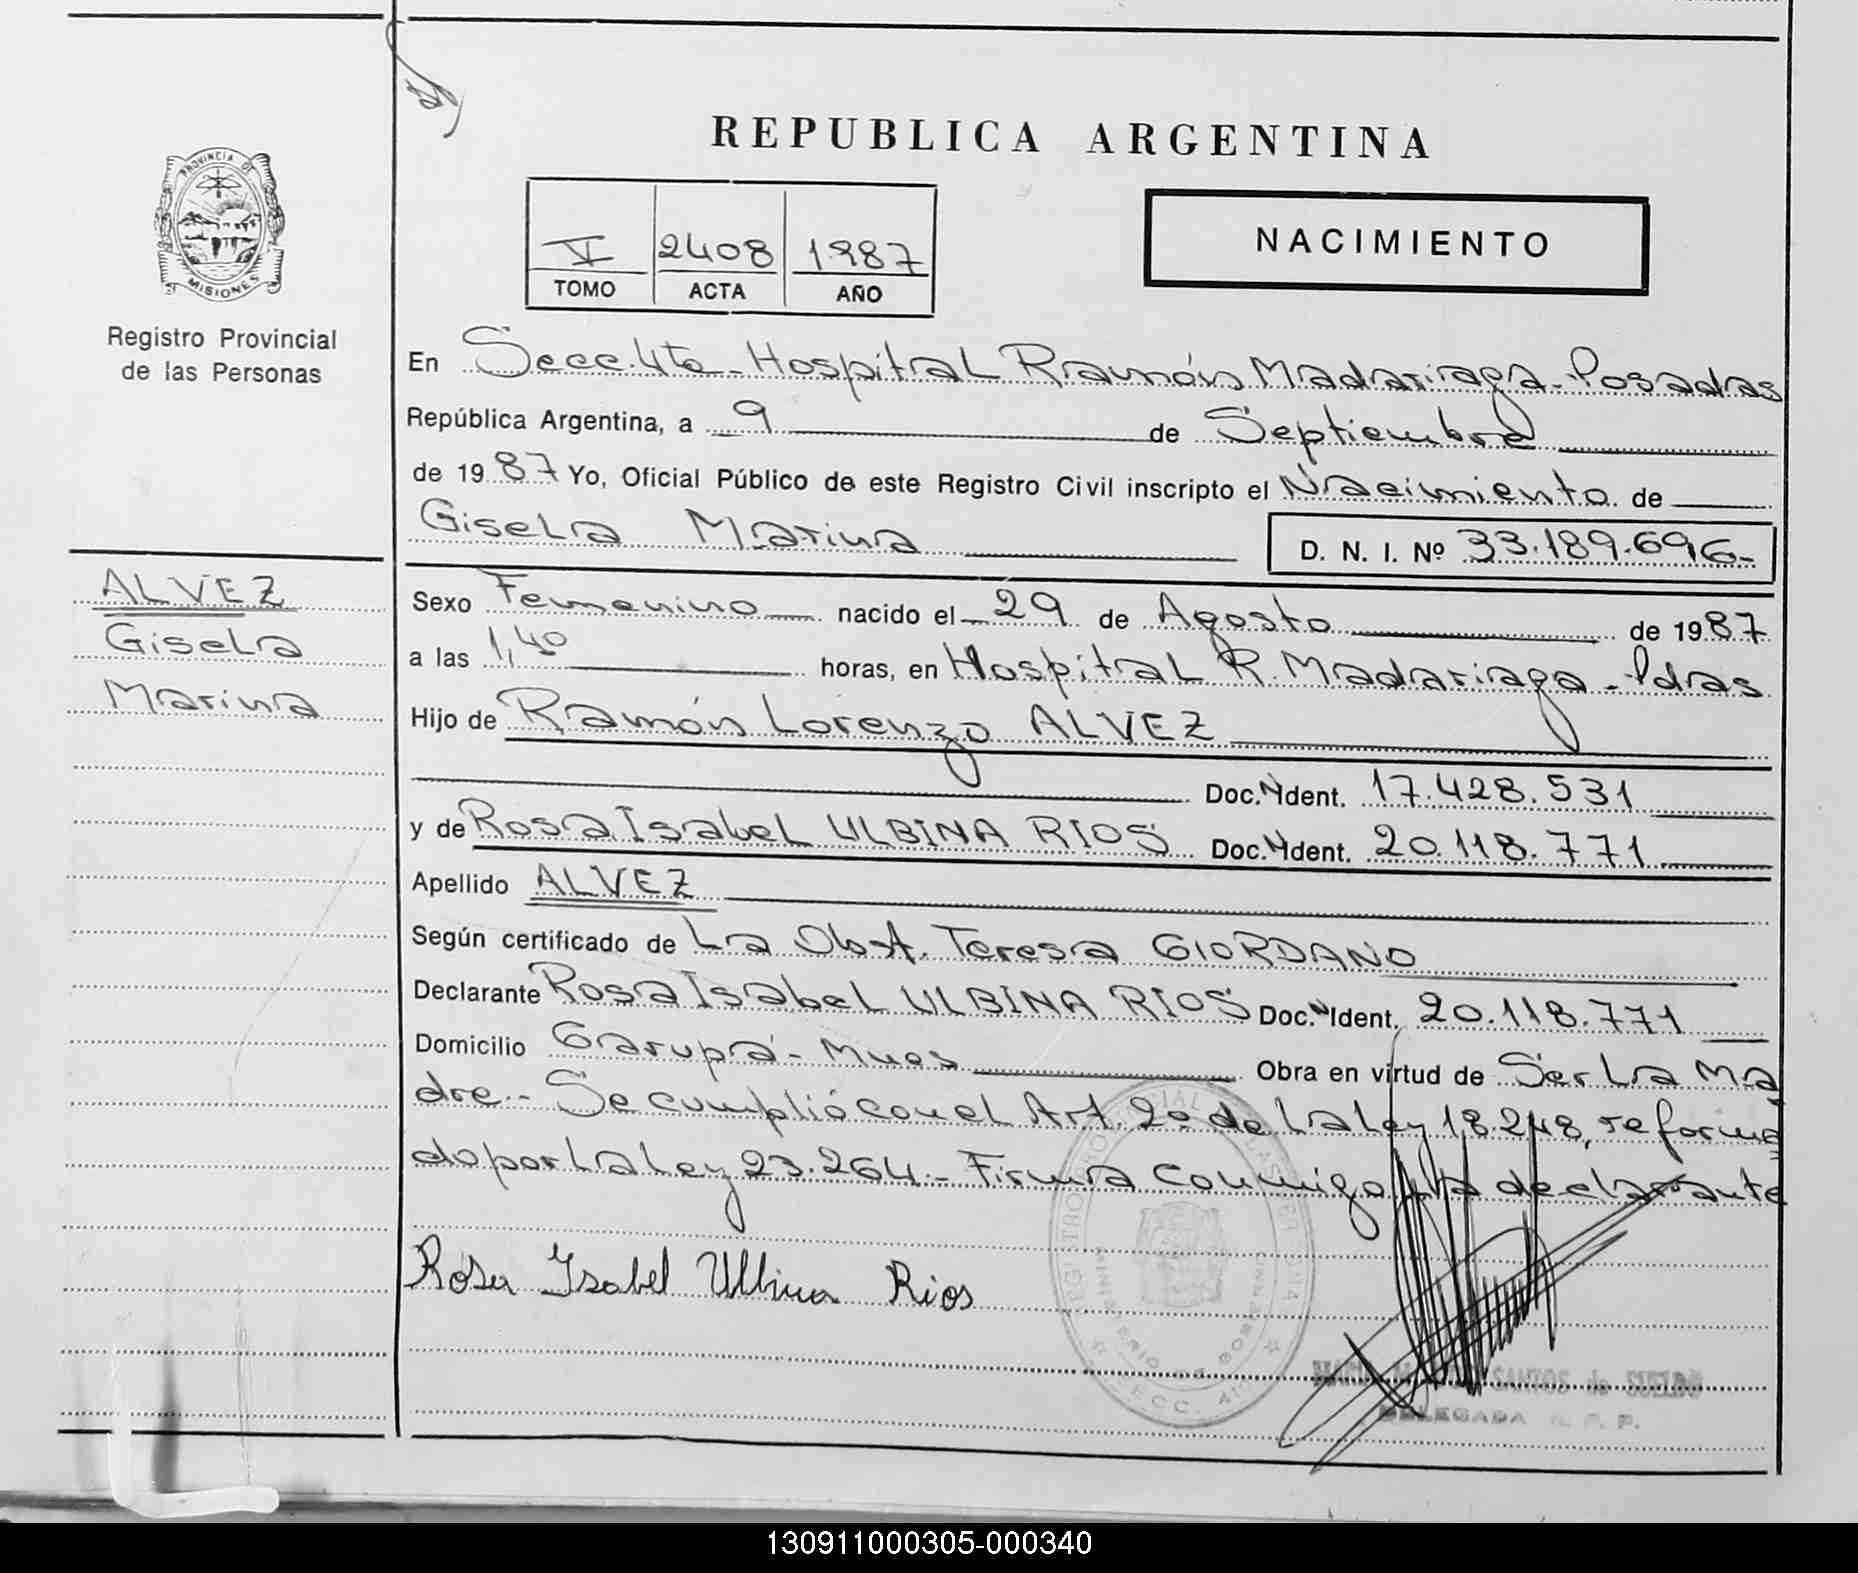 REPUBLICA ARGENTINA
PROVINCIA DE
MISIONES
Registro Provincial
de las Personas
V 2408 1987
TOMO ACTA AÑO
NACIMIENTO
En Secc. 4ta - Hospital Ramón Madariaga - Posadas
República Argentina, a 9 de Septiembre
de 1987 Yo, Oficial Público de este Registro Civil inscripto el Nacimiento de
Gisela Marina D. N. I. Nº 33.189.696-
ALVEZ
Gisela
Marina
Sexo Femenino nacido el 29 de Agosto de 1987
a las 1,40 horas, en Hospital R. Madariaga - Pdas
Hijo de Ramón Lorenzo ALVEZ
Doc. N Ident. 17.428.531
y de Rosa Isabel ULBINA RIOS Doc. N Ident. 20.118.771
Apellido ALVEZ
Según certificado de La Obst. Teresa GIORDANO
Declarante Rosa Isabel ULBINA RIOS Doc. N Ident. 20.118.771
Domicilio Garupá - Mnes Obra en virtud de Ser La Ma
dre - Se cumplió con el Art. 2º de La Ley 18.248, reforma
do por La Ley 23.264 - Firma conmigo la declarante
Rosa Isabel Ulbina Rios
DELEGADA R. P. P.
130911000305-000340